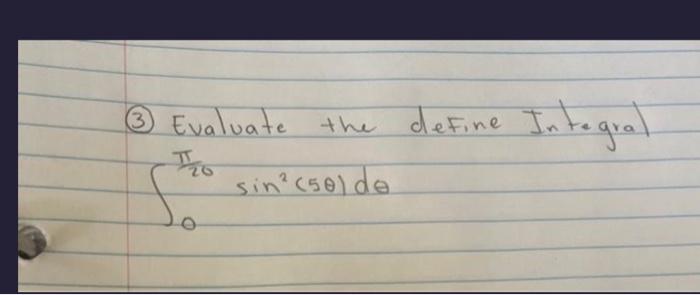 ③ Evaluate the define Integral
∫₀^(π/20) sin²(5θ) dθ